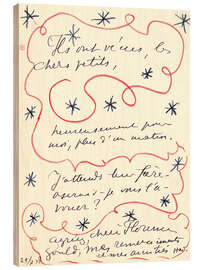 Ils ont vécus, les
chers petits,
heureusement pour
moi, plus d'un matin.
J'attends leur frère
oserais-je vous l'a-
vouer ?
chère Florence
Gould, mes remerciements
et mes amitiés